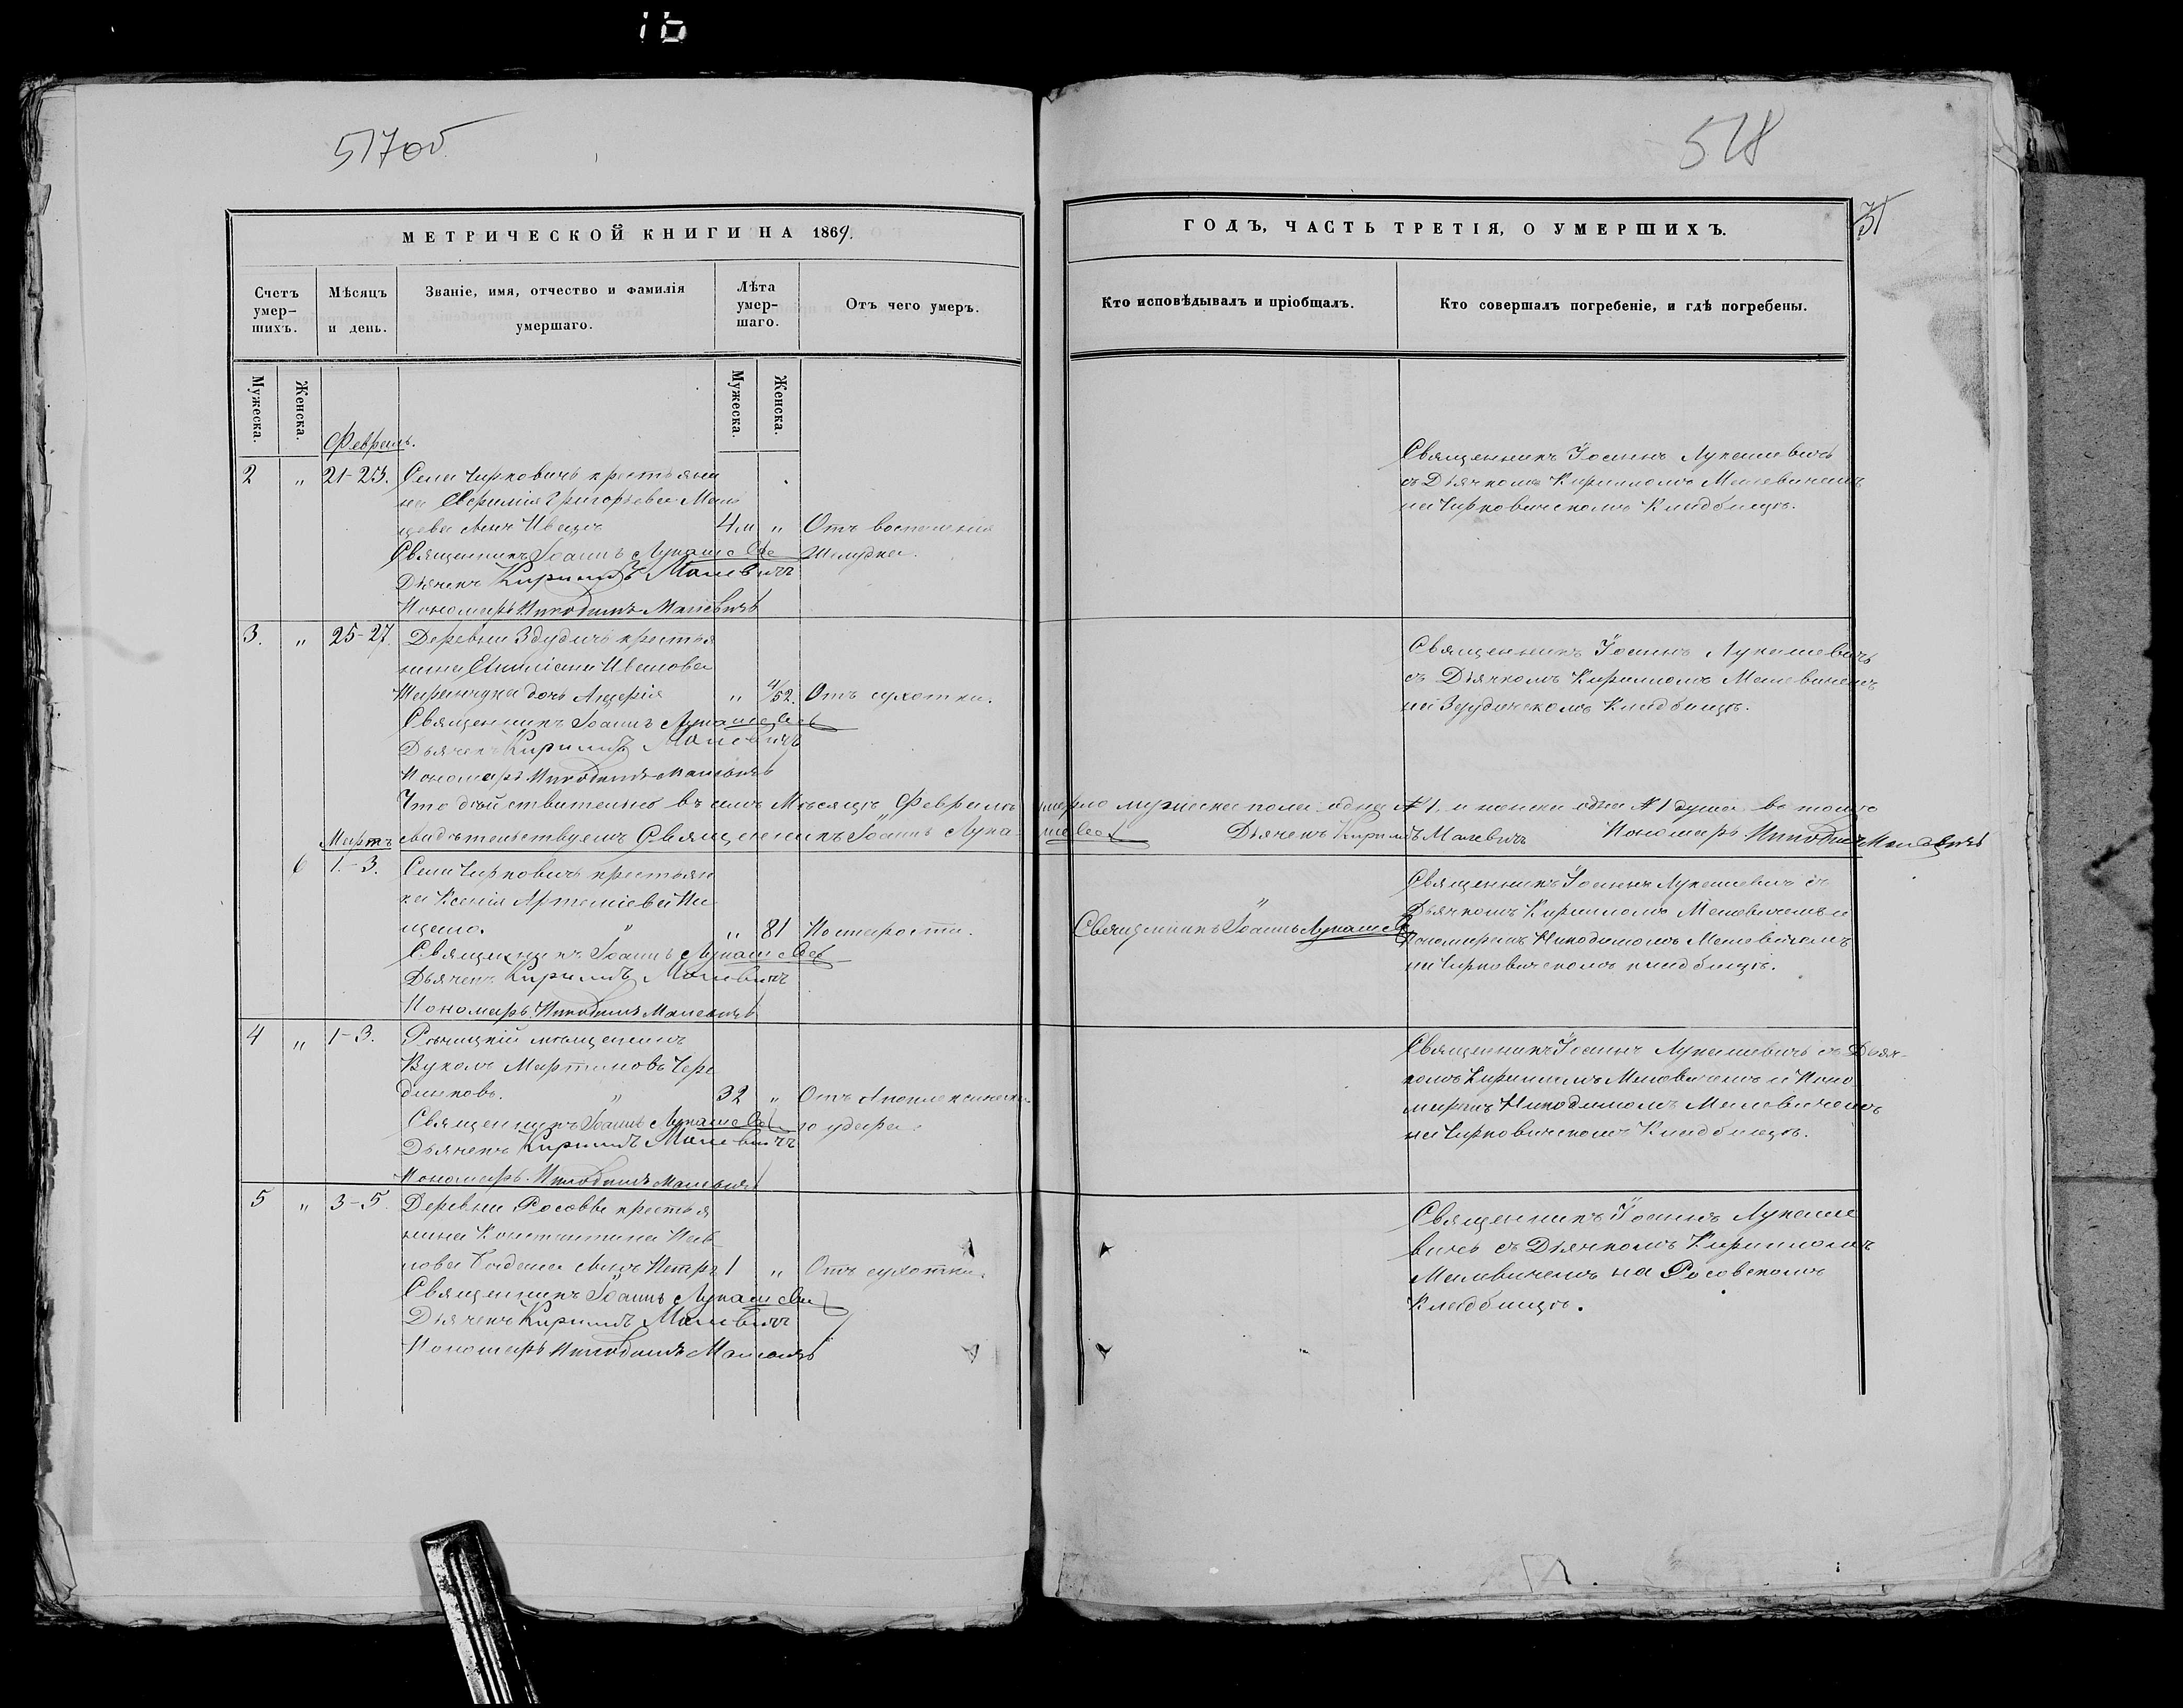 517об
МЕТРИЧЕСКОЙ КНИГИ НА 1869.
Счетъ умер-
шихъ.
Мѣсяцъ
и день.
Званіе, имя, отчество и фамилія
умершаго.
Лѣта
умер-
шаго.
Отъ чего умеръ.
Мужеска.
Женска.
Мужеска.
Женска.
Февраль.
2 " 21-23. Села Чирковичъ крестьяни
на Григорьева
сынъ Иванъ 4 м " Отъ воспаленія
Священникъ Іоаннъ Лукашевичъ желудка.
Дьячекъ Кириллъ Малевичъ
Пономарь Никодимъ Малевичъ
3. " 25-27. Деревни Здудичъ крестья
нина Иванова
дочь " 4/52. Отъ сухотки.
Священникъ Іоаннъ Лукашевичъ
Дьячекъ Кириллъ Малевичъ
Пономарь Никодимъ Малевичъ
Что дѣйствительно въ семъ Мѣсяцѣ Февралѣ
Мартъ свидѣтельствуемъ Священникъ Іоаннъ Лука-
6 1-3. Села Чирковичъ крестьян
ка Ксенія Артеміева
" " 81 По старости.
Священникъ Іоаннъ Лукашевичъ
Дьячекъ Кириллъ Малевичъ
Пономарь Никодимъ Малевичъ
4 " 1-3. Рѣчицкій мѣщанинъ
Вуколъ Мартиновъ Чере
" 32 " Отъ Апоплексическа
Священникъ Іоаннъ Лукашевичъ го удара.
Дьячекъ Кириллъ Малевичъ
Пономарь Никодимъ Малевичъ
5 " 3-5. Деревни Росовы крестья
нина Константина
лова сынъ Петръ 1 " Отъ сухотки.
Священникъ Іоаннъ Лукашевичъ
Дьячекъ Кириллъ Малевичъ
Пономарь Никодимъ Малевичъ
518
31
ГОДЪ, ЧАСТЬ ТРЕТІЯ, О УМЕРШИХЪ.
Кто исповѣдывалъ и пріобщалъ.
Кто совершалъ погребеніе, и гдѣ погребены.
Священникъ Іоаннъ Лукашевичъ
съ Дьячкомъ Кирилломъ Малевичемъ
на Чирковическомъ Кладбищѣ.
Священникъ Іоаннъ Лукашевичъ
съ Дьячкомъ Кирилломъ Малевичемъ
на Здудическомъ Кладбищѣ.
умерло мужеска пола одна №1, и женска одна №1 душа въ томъ
шевичъ Дьячекъ Кириллъ Малевичъ Пономарь Никодимъ Малевичъ
Священникъ Іоаннъ Лукашевичъ съ
Дьячкомъ Кирилломъ Малевичемъ и
Священникъ Іоаннъ Лукашевичъ Пономаремъ Никодимомъ Малевичемъ
на Чирковическомъ кладбищѣ.
Священникъ Іоаннъ Лукашевичъ съ Дьяч-
комъ Кирилломъ Малевичемъ и Поно
маремъ Никодимомъ Малевичемъ
на Чирковическомъ Кладбищѣ.
Священникъ Іоаннъ Лукаше
вичъ съ Дьячкомъ Кирилломъ
Малевичемъ на Росовскомъ
Кладбищѣ.